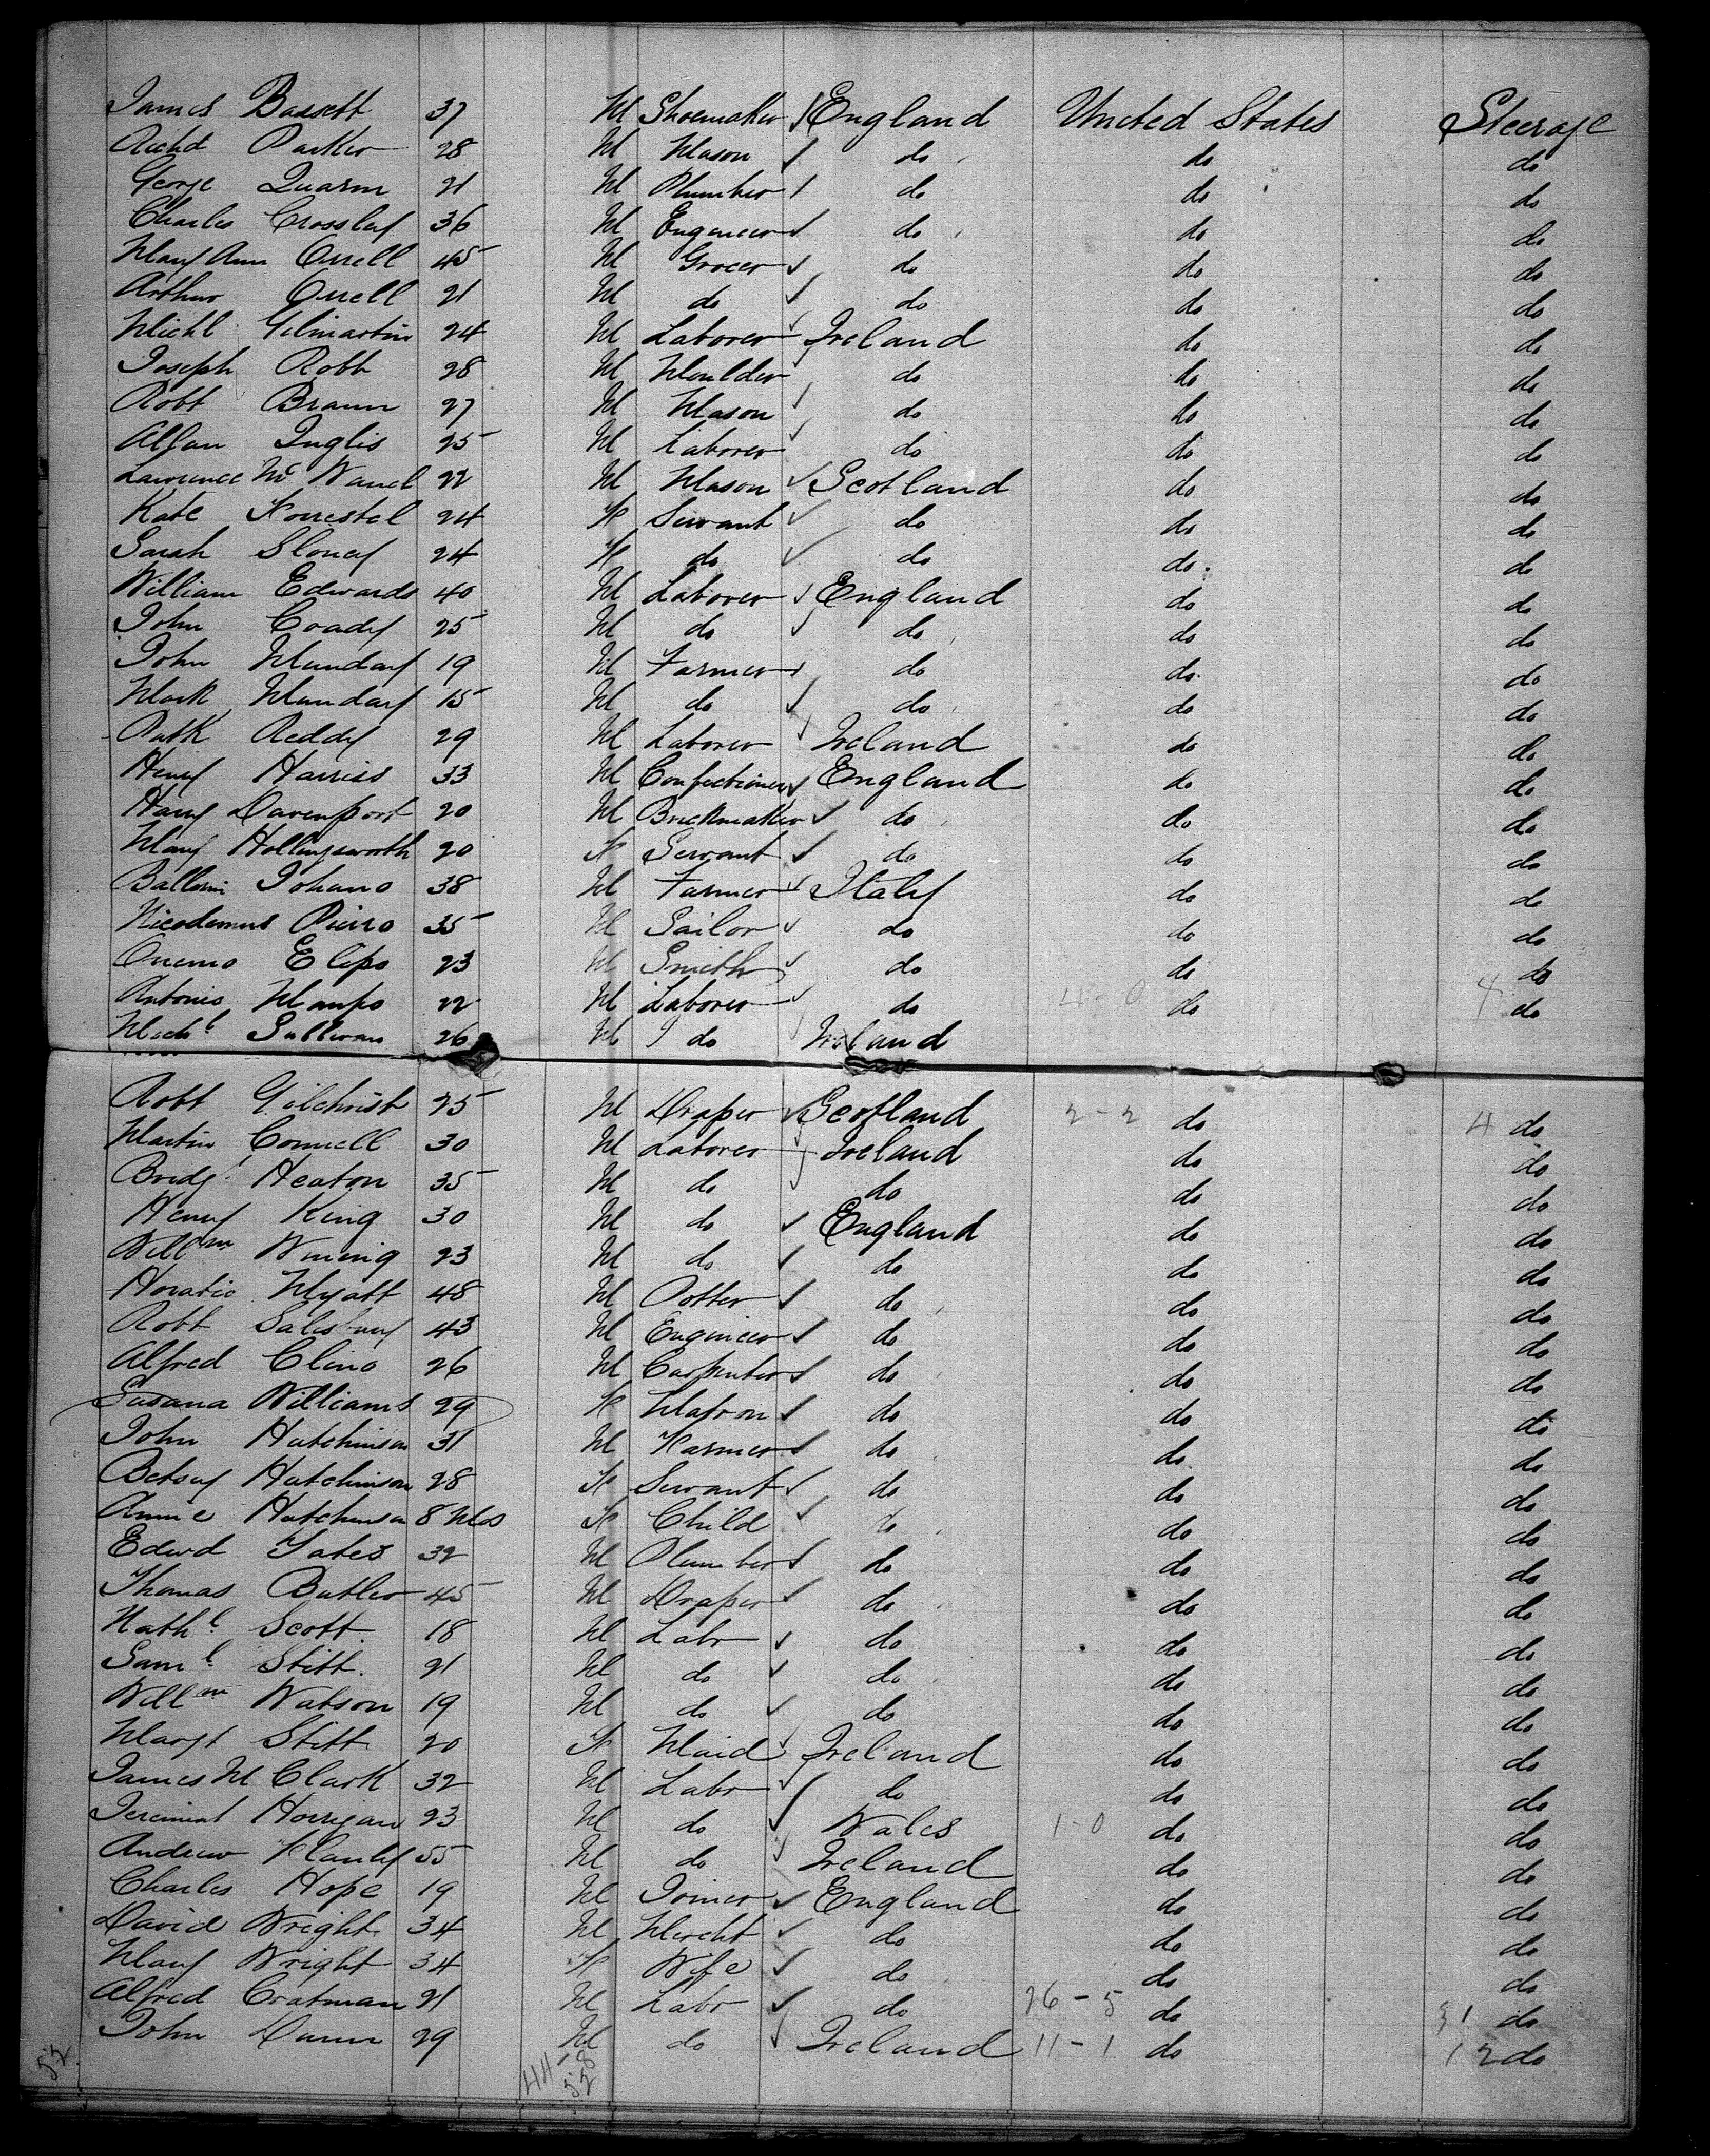 James Bassett 37 M Shoemaker England United States Steerage
Richd Parker 28 M Mason do do do
George Quarm 21 M Plumber do do do
Charles Crossley 36 M Engineer do do do
Mary Ann Orrell 45 M Grocer do do do
Arthur Orrell 21 M do do do do
Michl Gilmartin 24 M Laborer Ireland do do
Joseph Robb 28 M Moulder do do do
Robt Braun 27 M Mason do do do
Allan Inglis 25 M Laborer do do do
Lawrence Mc 22 M Mason Scotland do do
Kate Forrestal 24 F Servant do do do
Sarah Sloney 24 F do do do do
William Edwards 40 M Laborer England do do
John Coady 25 M do do do do
John Munday 19 M Farmer do do do
Mark Munday 15 M do do do do
Patk Reddy 29 M Laborer Ireland do do
Henry Harriss 33 M Confectioner England do do
Harry Davenport 20 M Brickmaker do do do
Mary Hollingsworth 20 F Servant do do do
Johano 38 M Farmer Italy do do
Nicodemus Pierro 35 M Sailor do do do
23 M Smith do do do
Antonio 22 M Laborer do 4-0 do 4 do
Michl Sullivan 26 M do Ireland
Robt Gilchrist 25 M Draper Scotland 2-2 do 4 do
Martin Connell 30 M Laborer Ireland do do
Bridgt Heaton 35 M do do do do
Henry King 30 M do England do do
Willm Wining 23 M do do do do
Horatio Myatt 48 M Potter do do do
Robt Salisbury 43 M Engineer do do do
Alfred Clino 26 M Carpenter do do do
Susana Williams 29 F Matron do do do
John Hutchinson 31 M Farmer do do do
Betsey Hutchinson 28 F Servant do do do
Annie Hutchinson 8 Mos F Child do do do
Edwd Yates 32 M Plumber do do do
Thomas Butler 45 M Draper do do do
Nathl Scott 18 M Labr do do do
Saml Stitt 21 M do do do do
Willm Watson 19 M do do do do
Margt Stitt 20 F Maid Ireland do do
James M Clark 32 M Labr do do do
Jeremiah Horrigan 23 M do Wales 1-0 do do
Andrew 55 M do Ireland do do
Charles Hope 19 M Joiner England do do
David Wright 34 M Mercht do do do
Mary Wright 34 F Wife do do do
Alfred Cratman 21 M Labr do 26-5 do 31 do
John Dunn 29 M do Ireland 11-1 do 12 do
52 44-8
52